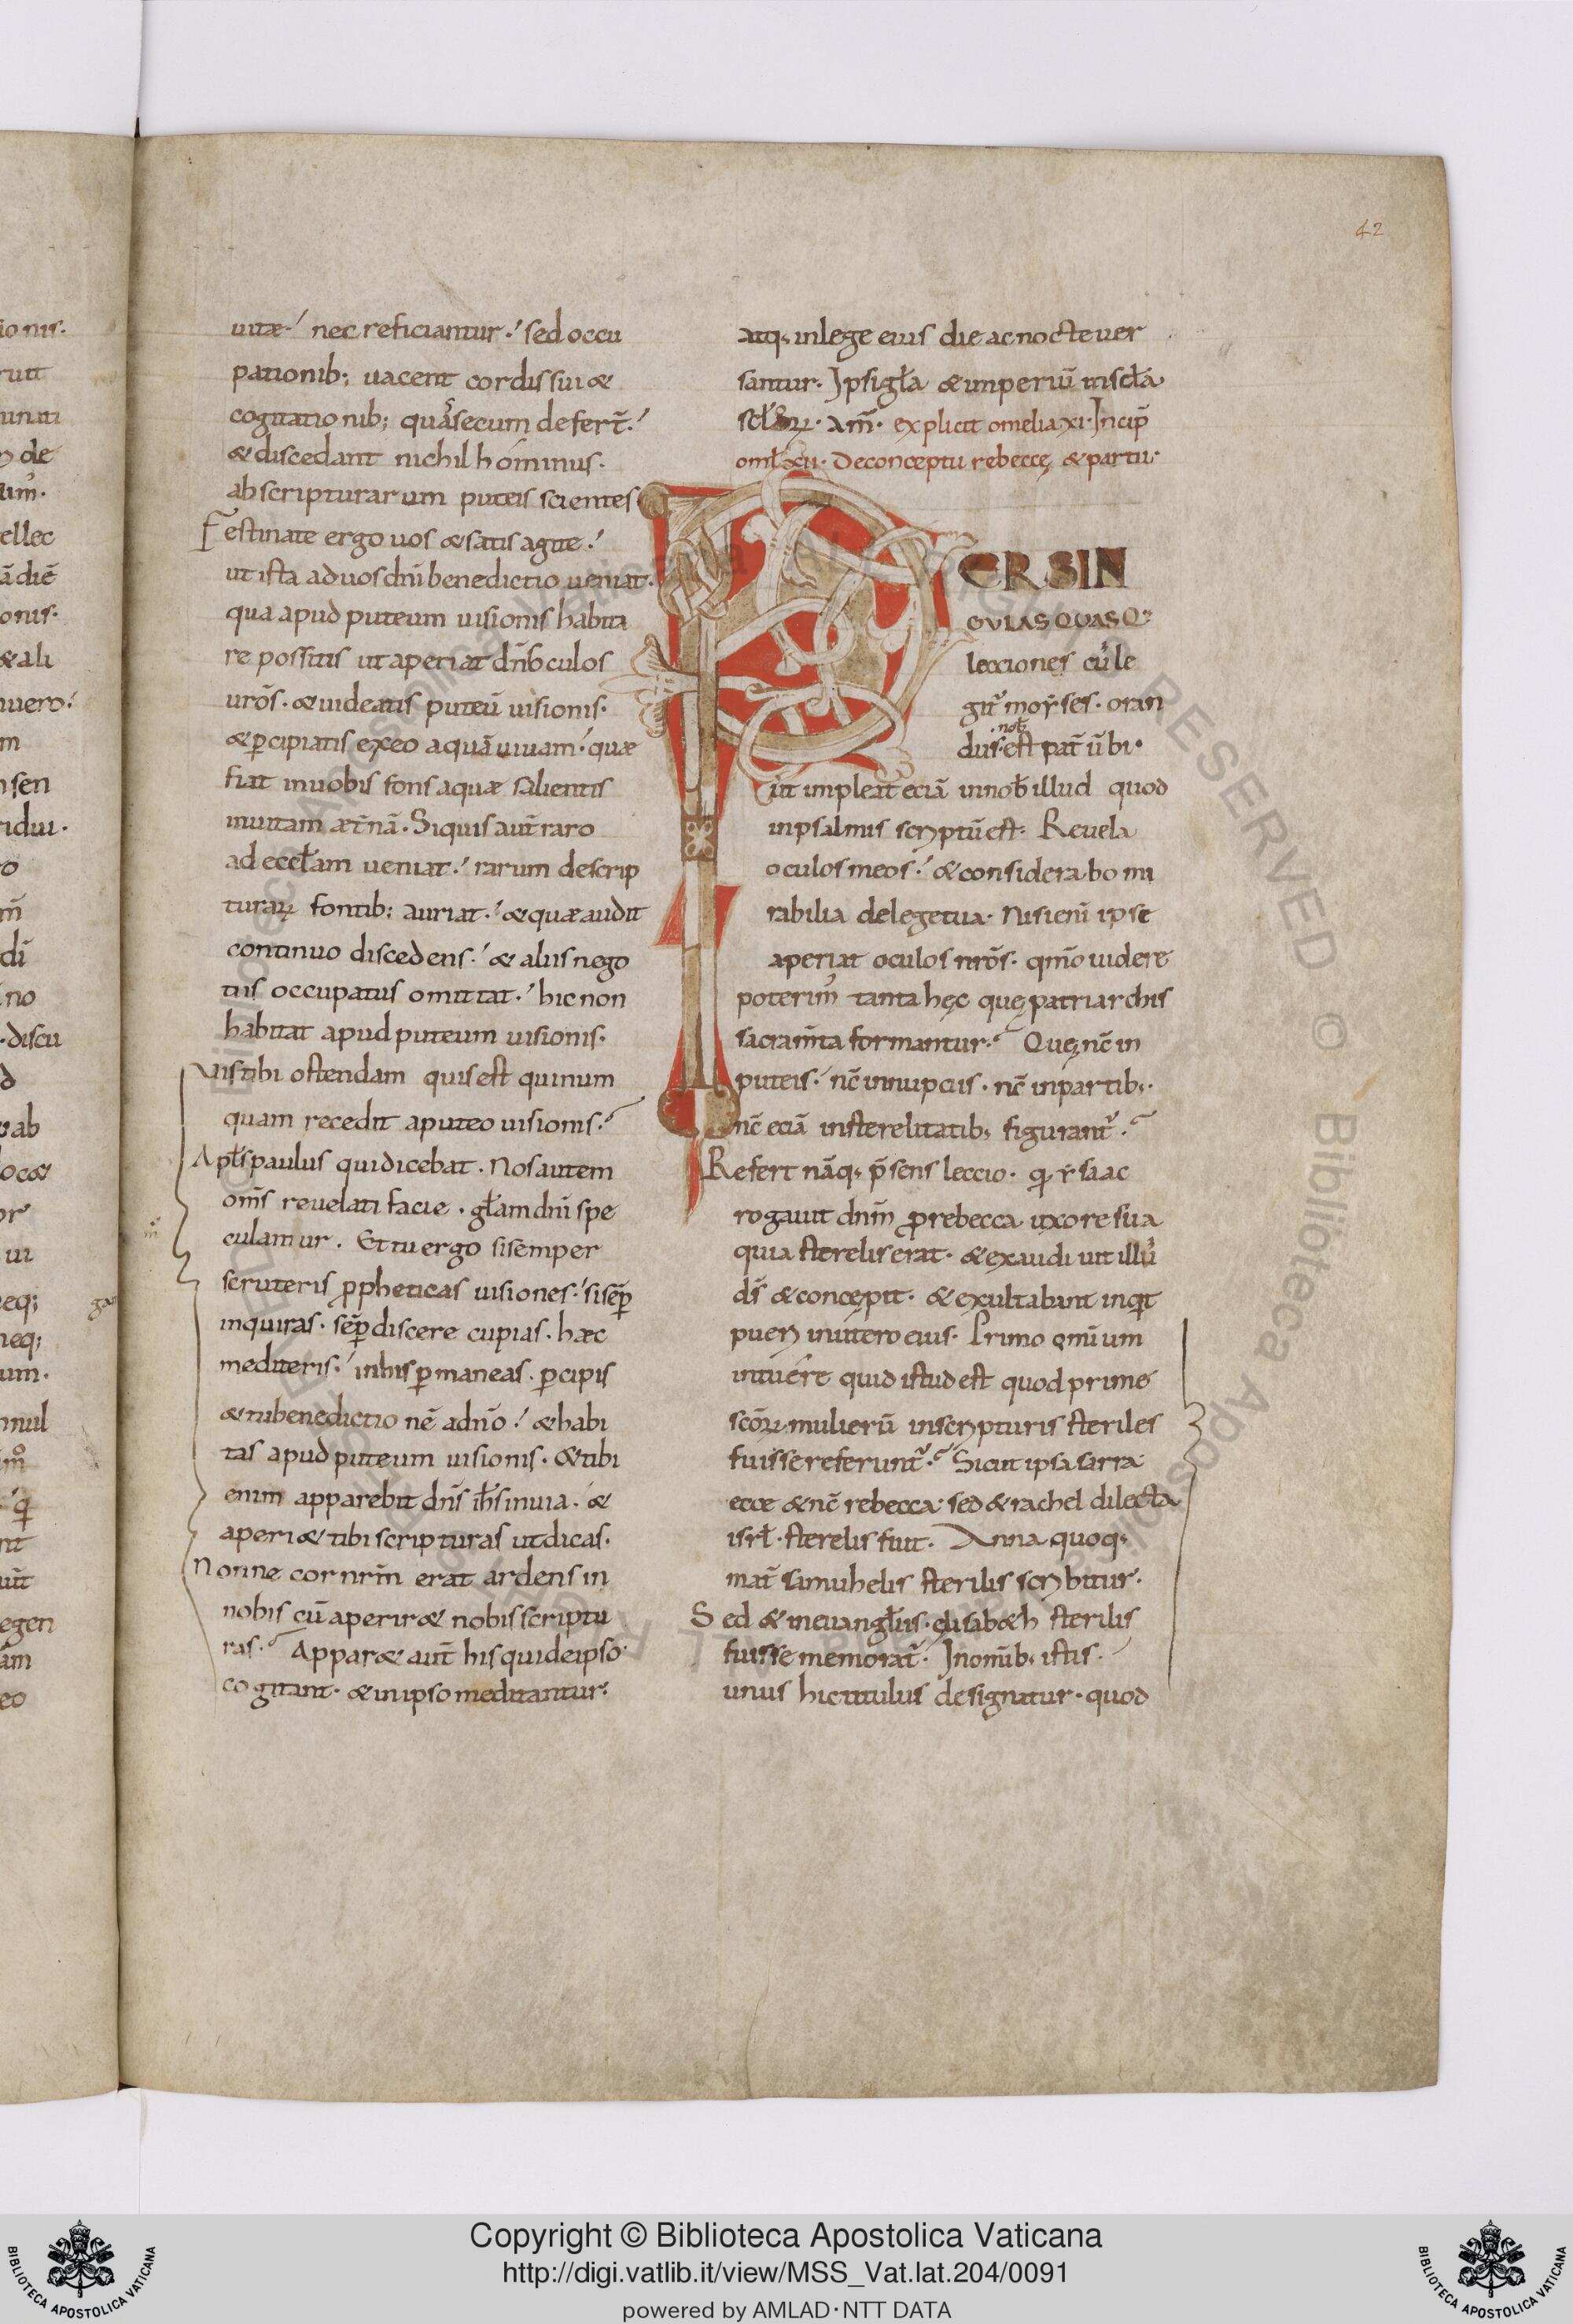 42
uitæ.' nec reficiantur.' sed occu
pationib; uacent cordis sui &
cogitationib; quā secum defert̄.'
& discedant nichilhóminus.
ab scripturarum puteis scientes
Festinate ergo uos & satis agite.'
ut ista ad uos dn̄i benedictio ueniat.
qua apud puteum uisionis habita
re possitis ut aperiat dn̄s oculos
urōs. & uideatis puteū uisionis.
& p̄cipiatis ex eo aquā uiuam.' quæ
fiat in uobis fons aquæ salientis
in uitam æt̄nā. Siquis aut̄ raro
ad eccłam ueniat.' rarum de scrip
turaꝝ fontib; auriat.' & quæ audit
continuo discedens.' & aliis nego
tiis occupatus omittat.' hic non
habitat apud puteum uisionis.
Uis tibi ostendam quis est qui num
quam recedit a puteo uisionis.
Apłs paulus qui dicebat. Nos autem
om̄s reuelati facie. głam dn̄i spe
culamur. Et tu ergo si semper
scruteris ꝓpheticas uisiones.' si sēp̄
inquiras. sēp̄ discere cupias. hæc
mediteris.' in his ꝑmaneas. ꝑcipis
& tu benedictionē a dn̄o.' & habi
tas apud puteum uisionis. & tibi
enim apparebit dn̄s ih̄s in uia. &
aperi& tibi scripturas ut dicas.
Nonne cor nr̄m erat ardens in
nobis cū aperir& nobis scriptu
ras. Appar& aut̄ his qui de ipso
cogitant. & in ipso meditantur.
atq; in lege eius die ac nocte uer
santur. Ipsi gła & imperiū in scła
scłoꝝ. am̄. explicit omelia xi. Incip̄
omł xii. De conceptu rebeccę & partu.
PER SIN
GVLAS QVASQ;
lecciones cū le
git̄ moyses. oran
dus. nob̄ est pat̄ ūbi.
ut impleat eciā in nob̄ illud quod
in psalmis scriptū est. Reuela
oculos meos.' & considerabo mi
rabilia de lege tua. Nisi eni ipse
aperiat oculos nrōs. qm̄o uidere
poterim̄ tanta hęc quę patriarchis
sacram̄ta formantur. Quę nc̄ in
puteis.' nc̄ in nupciis. nc̄ in partib;.
nc̄ eciā in sterelitatib; figurant̄.
Refert nāq; p̄sens leccio. q ysaac
rogauit dnīm ꝓ rebecca uxore sua
quia sterelis erat. & exaudiuit illū
ds̄ & concępit. & exultabant inqit
pueri in utero eius. Primo omium
intuére quid istud est quod prime
scōꝝ mulierū in scripturis steriles
fuisse referunt̄. Sicut ipsa sarra
ecce & nc̄ rebecca. sed & rachel dilecta
isrł. sterelis fuit. Anna quoq;
mat̄ samuhelis sterilis scribitur.
Sed & in euangłiis. elisab&h sterilis
fuisse memorat̄. In omib; istis.
unus hic titulus designatur. quod
Copyright © Biblioteca Apostolica Vaticana
http://digi.vatlib.it/view/MSS_Vat.lat.204/0091
powered by AMLAD·NTT DATA
BIBLIOTECA APOSTOLICA VATICANA
BIBLIOTECA APOSTOLICA VATICANA